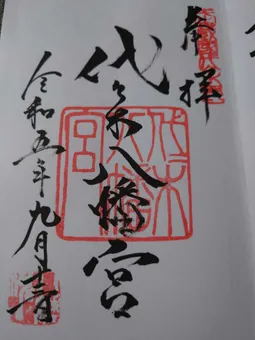 奉拝
代々木八幡宮
令和五年九月